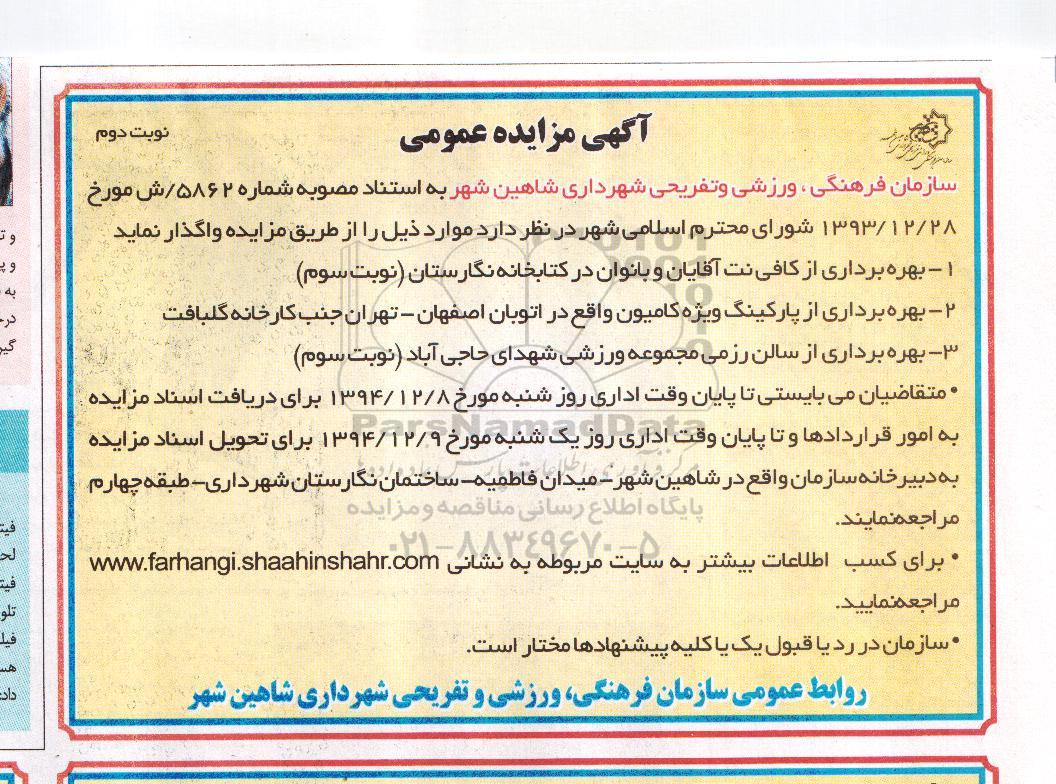 آگهی مزایده عمومی
نوبت دوم
سازمان فرهنگی ، ورزشی وتفریحی شهرداری شاهین شهر به استناد مصوبه شماره ۵۸۶۲/ش مورخ
۱۳۹۳/۱۲/۲۸ شورای محترم اسلامی شهر در نظر دارد موارد ذیل را از طریق مزایده واگذار نماید
۱- بهره برداری از کافی نت آقایان و بانوان در کتابخانه نگارستان (نوبت سوم)
۲- بهره برداری از پارکینگ ویژه کامیون واقع در اتوبان اصفهان - تهران جنب کارخانه گلبافت
۳- بهره برداری از سالن رزمی مجموعه ورزشی شهدای حاجی آباد (نوبت سوم)
• متقاضیان می بایستی تا پایان وقت اداری روز شنبه مورخ ۱۳۹۴/۱۲/۸ برای دریافت اسناد مزایده
به امور قراردادها و تا پایان وقت اداری روز یک شنبه مورخ ۱۳۹۴/۱۲/۹ برای تحویل اسناد مزایده
به دبیرخانه سازمان واقع در شاهین شهر - میدان فاطمیه - ساختمان نگارستان شهرداری - طبقه چهارم
مراجعه نمایند.
• برای کسب اطلاعات بیشتر به سایت مربوطه به نشانی www.farhangi.shaahinshahr.com
مراجعه نمایید.
• سازمان در رد یا قبول یک یا کلیه پیشنهادها مختار است.
روابط عمومی سازمان فرهنگی، ورزشی و تفریحی شهرداری شاهین شهر
ParsNamadData
پایگاه اطلاع رسانی مناقصه و مزایده
۰۲۱-۸۸۳۴۹۶۷۰-۵